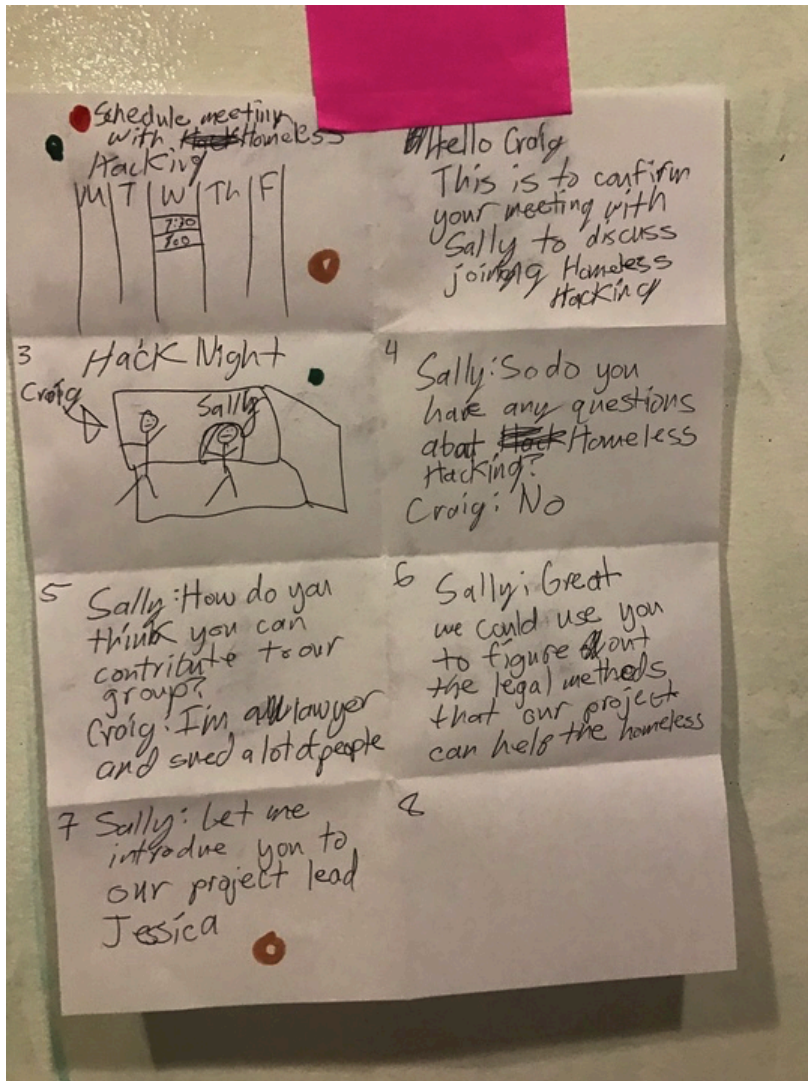 Schedule meeting
with Homeless
Hacking
M T W Th F
7:30
8:00
Hello Craig
This is to confirm
your meeting with
Sally to discuss
joining Homeless
Hacking
3 Hack Night
Craig
Sally
4 Sally: So do you
have any questions
about Homeless
Hacking?
Craig: No
5 Sally: How do you
think you can
contribute to our
group?
Craig: I'm a lawyer
and sued a lot of people
6 Sally: Great
we could use you
to figure out
the legal methods
that our project
can help the homeless
7 Sally: Let me
introdue you to
our project lead
Jessica
8